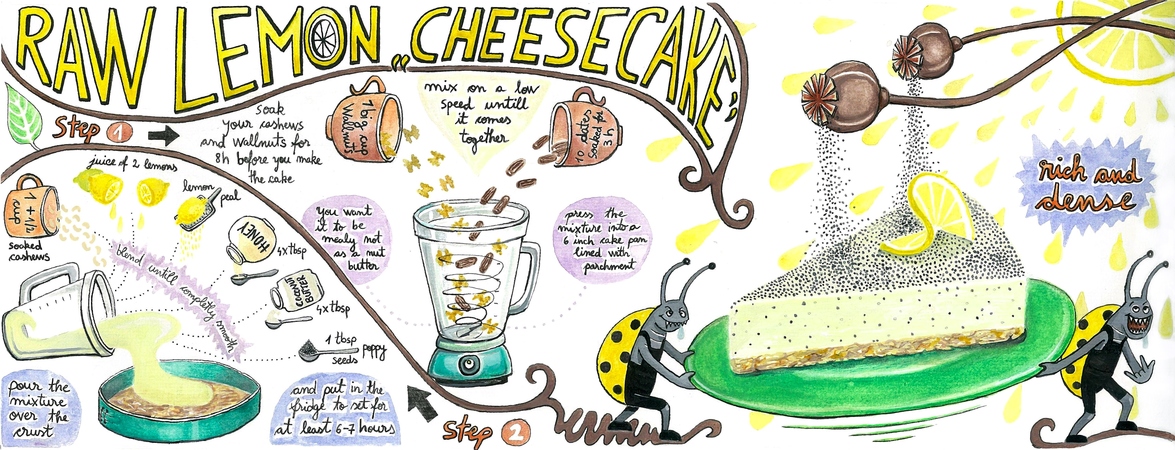 RAW LEMON „CHEESECAKE”
Step 1
soak
your cashews
and wallnuts for
8h before you make
the cake
1 big cup
wallnuts
mix on a low
speed untill
it comes
together
10 dates
soaked for
3 h
You want
it to be
mealy not
as a nut
butter
press the
mixture into a
6 inch cake pan
lined with
parchment
juice of 2 lemons
lemon
peal
1 + 1/2
cup
soaked
cashews
HONEY
4x tbsp
COCONUT
BUTTER
4x tbsp
1 tbsp poppy
seeds
blend untill completely smooth
pour the
mixture
over the
crust
and put in the
fridge to set for
at least 6-7 hours
Step 2
rich and
dense